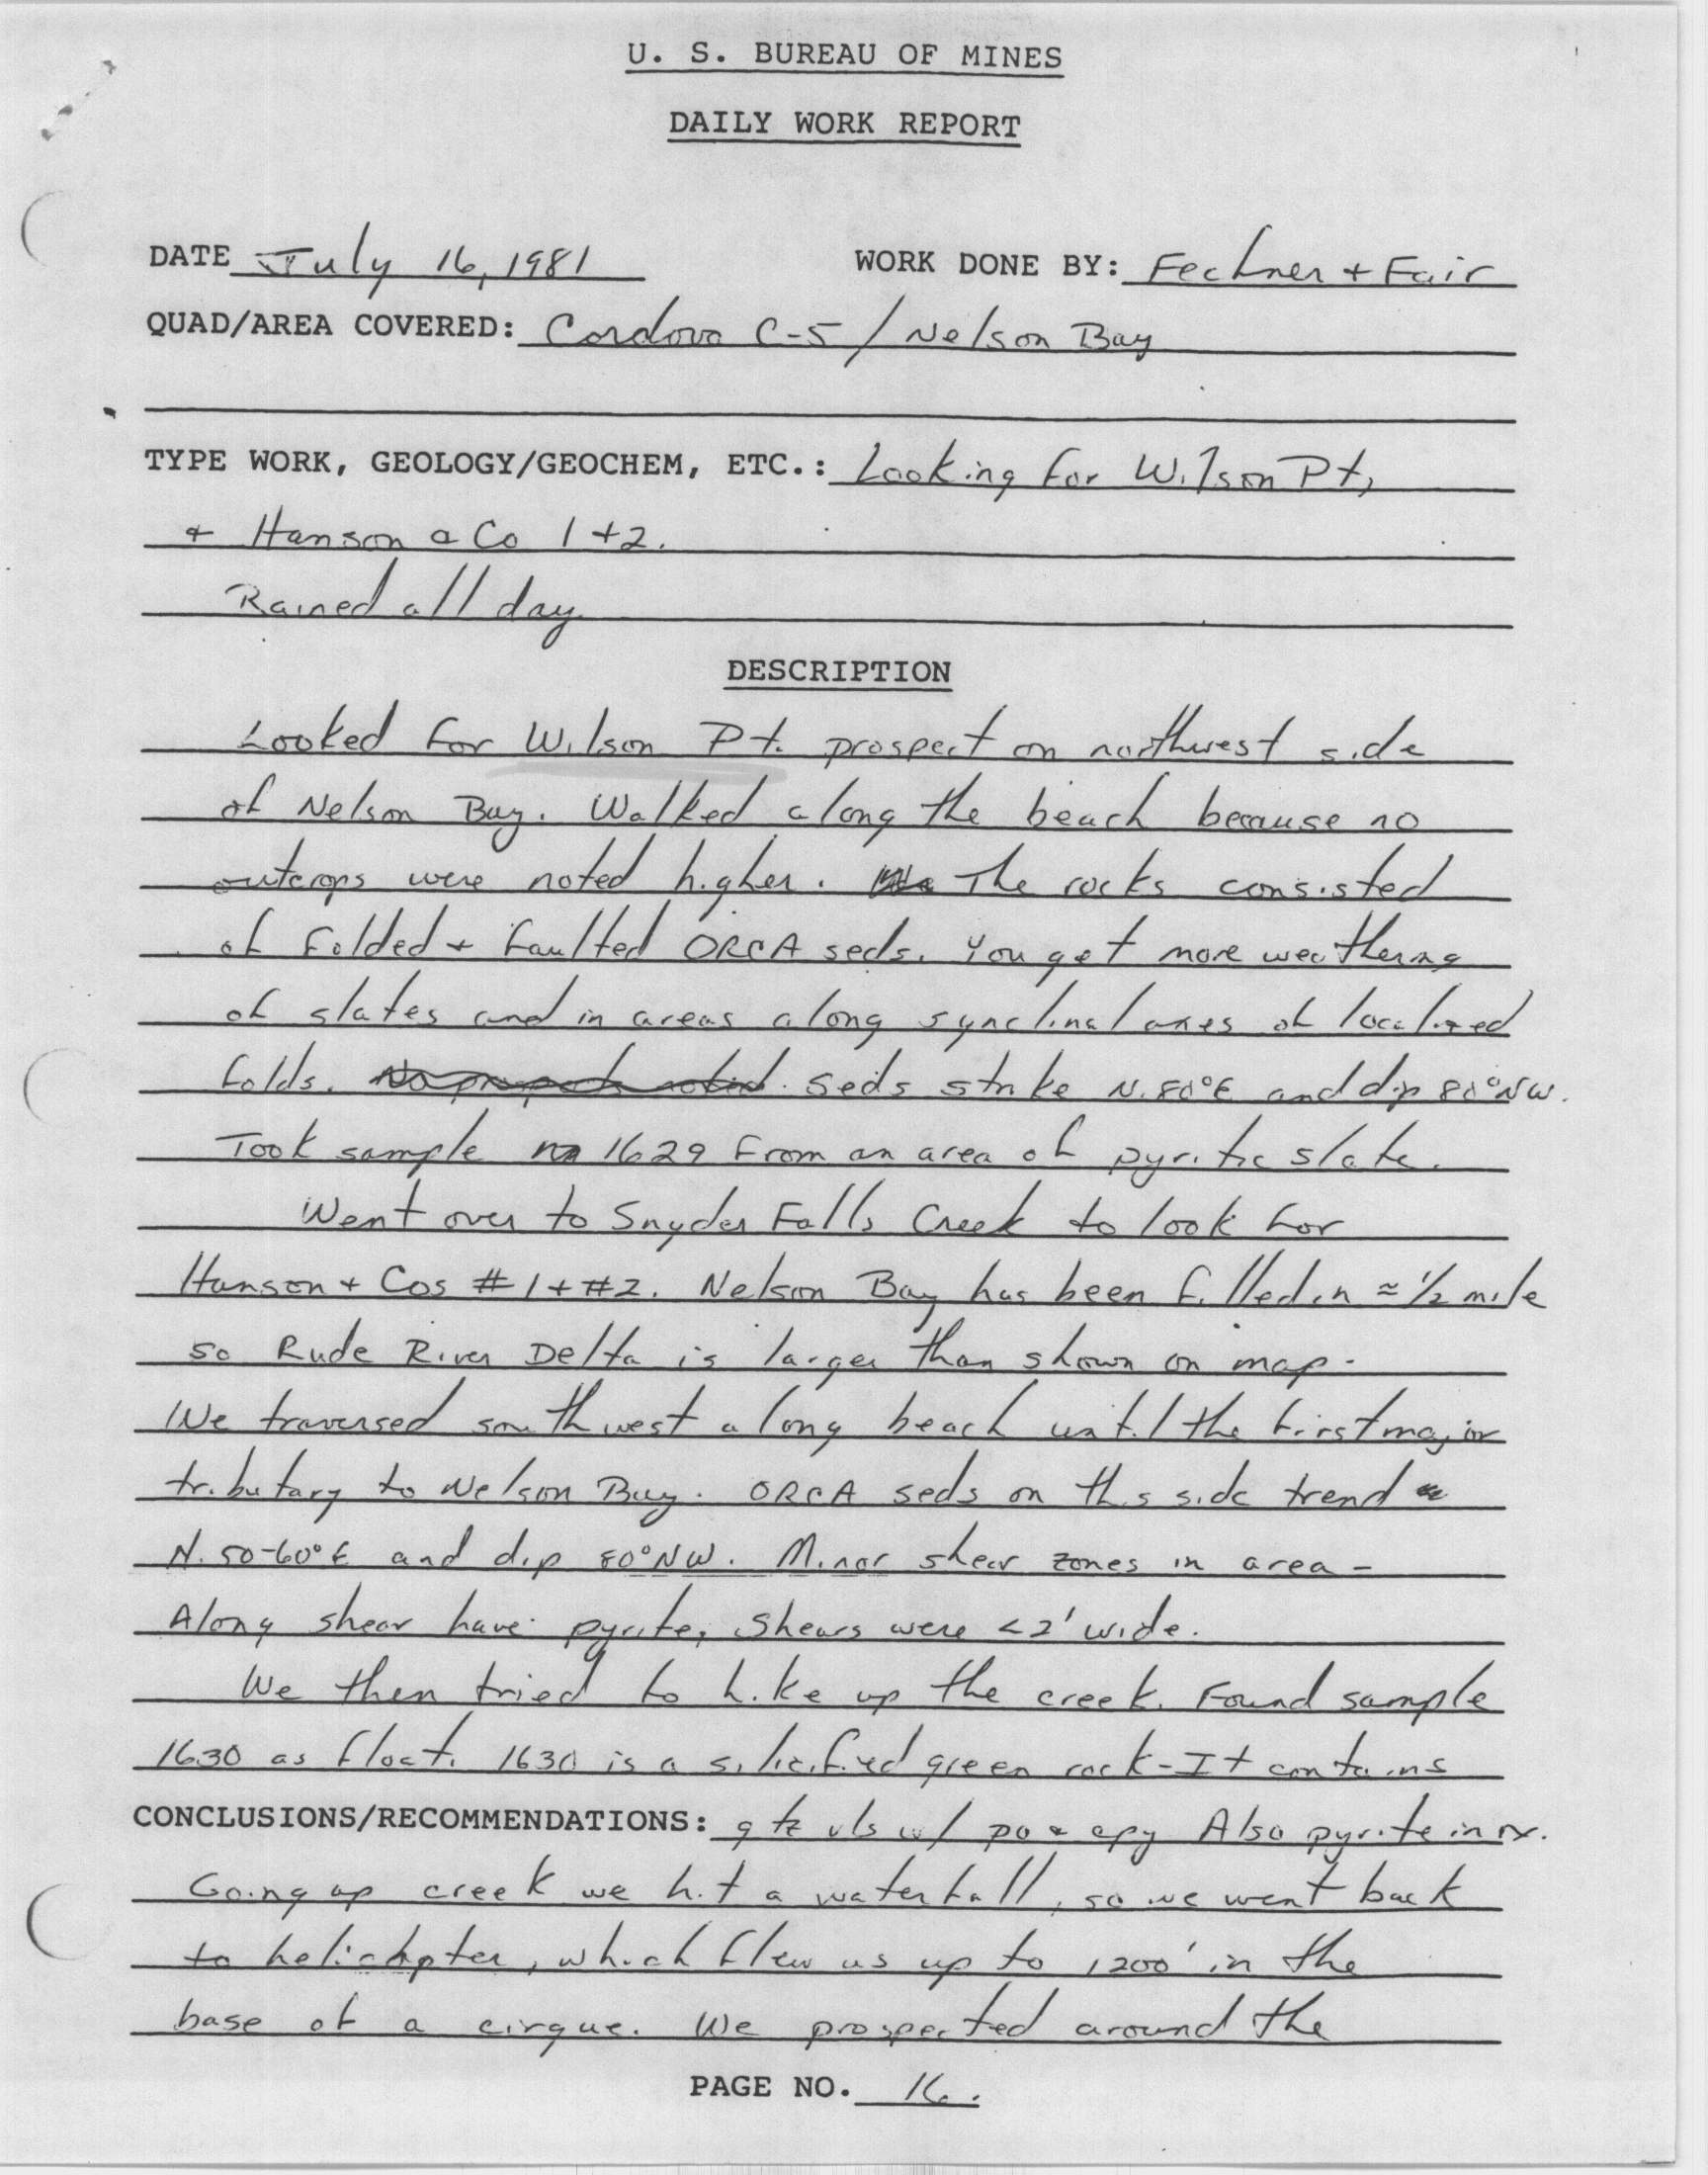 U. S. BUREAU OF MINES
DAILY WORK REPORT
DATE July 16, 1981 WORK DONE BY: Fechner + Fair
QUAD/AREA COVERED: Cordova C-5 / Nelson Bay
TYPE WORK, GEOLOGY/GEOCHEM, ETC.: Looking for Wilson Pt,
+ Hanson & Co 1+2.
Rained all day
DESCRIPTION
Looked for Wilson Pt. prospect on northwest side
of Nelson Bay. Walked along the beach because no
outcrops were noted higher. The rocks consisted
of folded + faulted ORCA seds. You get more weathering
of slates and in areas along synclinal axes of localized
folds. No prospects noted. seds strike N.80°E and dip 80°NW.
Took sample 1629 from an area of pyritic slate.
Went over to Snyder Falls Creek to look for
Hanson + Cos #1+#2. Nelson Bay has been filled in ≈ 1/2 mile
so Rude River Delta is larger than shown on map.
We traversed southwest along beach until the first major
tributary to Nelson Bay. ORCA seds on this side trend
N. 50-60°E and dip 80°NW. Minor shear zones in area -
Along shear have pyrite, Shears were <2' wide.
We then tried to hike up the creek. Found sample
1630 as float. 1630 is a silicified green rock - It contains
CONCLUSIONS/RECOMMENDATIONS: qtz vls w/ po & cpy Also pyrite in rx.
Going up creek we hit a waterfall, so we went back
to helicopter, which flew us up to 1200' in the
base of a cirque. We prospected around the
PAGE NO. 16.